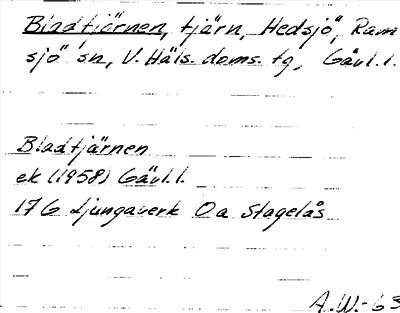 Bladtjärnen, tjärn, Hedsjö, Ram
sjö sn, V. Häls. doms. tg, Gävl. l.
Bladtjärnen
ek (1958) Gävl. l.
17 G Ljungaverk 0a Stagelås
A.W.-63